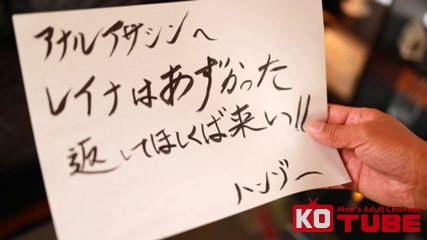 アナルイサシンへ
レイナはあずかった
返してほしくば来い!!
ハンゾー
KO Men's Adult Channel
TUBE